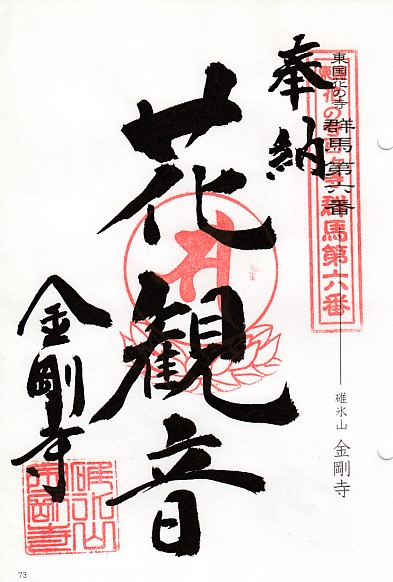 東国花の寺 群馬第六番
碓氷山 金剛寺
東国花の寺百ヶ寺群馬第六番
奉納
花観音
金剛寺
碓氷山
金剛寺
73